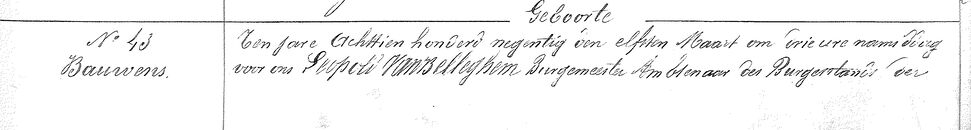 Geboorte
N° 43
Bauwens.
Ten jare Achttien honderd negentig den elfsten Maart om drie ure namiddag
voor ons Leopold Van Belleghem Burgemeester Ambtenaar des Burgerstands der